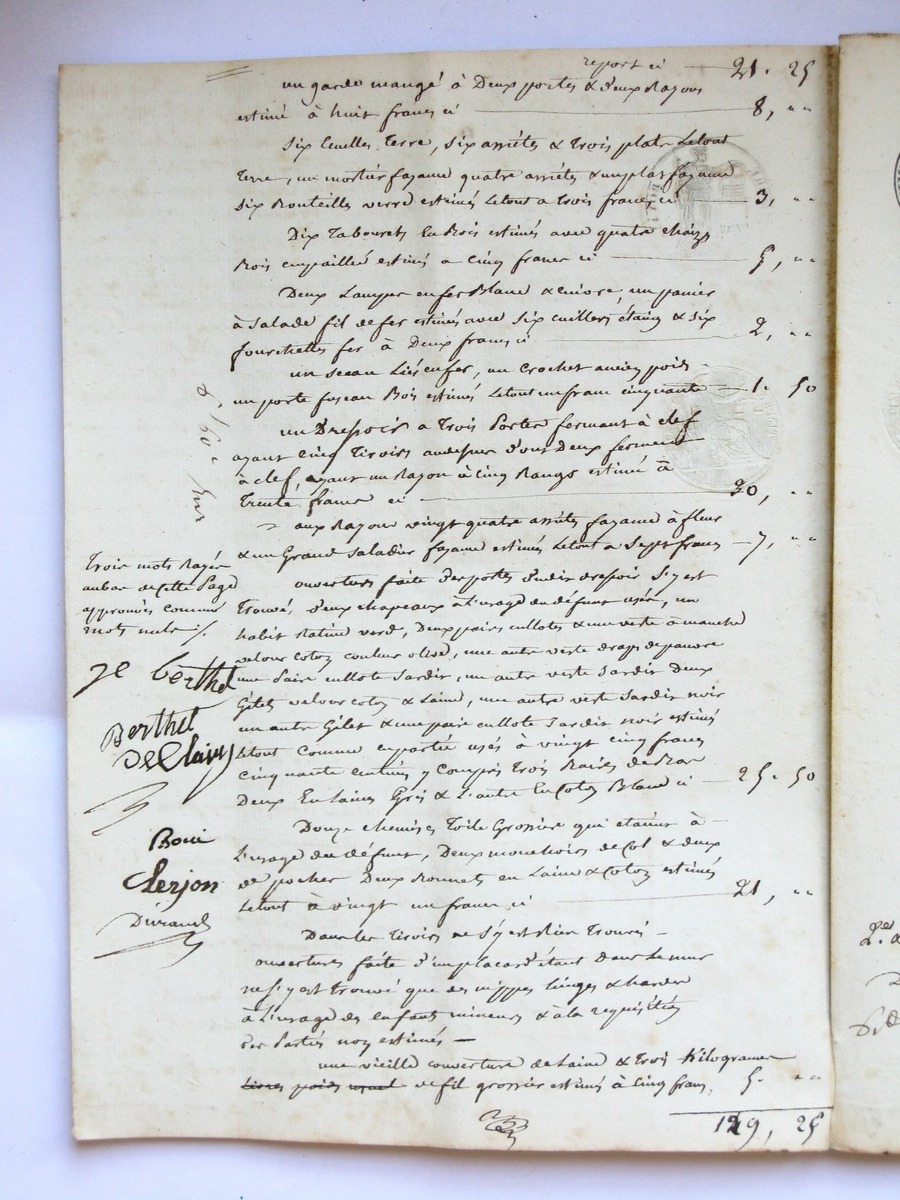 report ci 21. 25
un garde mangé à Deux portes & Deux Rayons
estimé à huit francs ci 8, ""
Six Ecuelles Terre, Six assiétes & trois plats Letout
Terre, un mortier fayance quatre assiétes & un plat fayance
Six Bouteilles verre estimés Letout a trois francs ci 3, ""
Dix Tabourets En Bois estimés avec quatre chaizes
Bois empaillée estimés a Cinq francs ci 5, ""
Deux Lampes en fer Blanc & cuivre, un panier
à Salade fil de fer estimés avec Six cuillers étaing & Six
fourchettes fer à Deux francs ci 2, ""
un Seau Liés en fer, un Crochet ancien poids
un porte fuseau Bois estimés Letout un franc cinquante 1. 50
un Dressoir a Trois Portes fermant à clef
ayant cinq Tiroirs au dessus Dont Deux ferment
à clef, ayant un Rayon à Cinq Rangs estimé à
Trente francs ci 30, ""
aux Rayons vingt quatre assiétes fayance à fleur
& un Grand Saladier fayance estimés Letout a Sept francs 7, ""
ouverture faite Des portes Dudit Dressoir S'y est
Trouvé, Deux chapeaux à L'usage du défunt usés, un
habit Ratine verd, Deux pairs cullotes & une veste à manche
velour coton couleur olive, une autre veste drap de pauvre
une Paire cullote Sardis, un autre veste Sardis Deux
Gilets velour coton & Laine, une autre veste Sardis noir
un autre Gilet & une paire cullote Sardis noir estimés
Letout Comme en partie usés à vingt cinq francs
Cinquante centimes y Compris Trois Paires de Bas
Deux En Laine Gris & L'autre En Coton Blanc ci 25. 50
Douze chemises Toile Grossiere qui étaient à
L'usage du Défunt, Deux mouchoirs de Col & deux
de pocher Deux Bonnets en Laine & Coton estimés
Letout à vingt un francs ci 21, ""
Dans les Tiroirs ne S'y est Rien Trouvé
ouverture faite D'un placard étant Dans Le mur
ne S'y est trouvé que des nippes Linges & hardes
à L'usage des enfants mineurs & à la requisition
Des Parties non estimés
une vieille couverture de Laine & trois Kilogrames
Livres poids usuel de fil grossier estimés à Cinq francs, 5. ""
129, 25
Trois mots Rayés
au bas de Cette Page
approuvés comme
mots nuls ./.
je berthet
Berthet
De Clavy
Boui
Clerjon
Durand